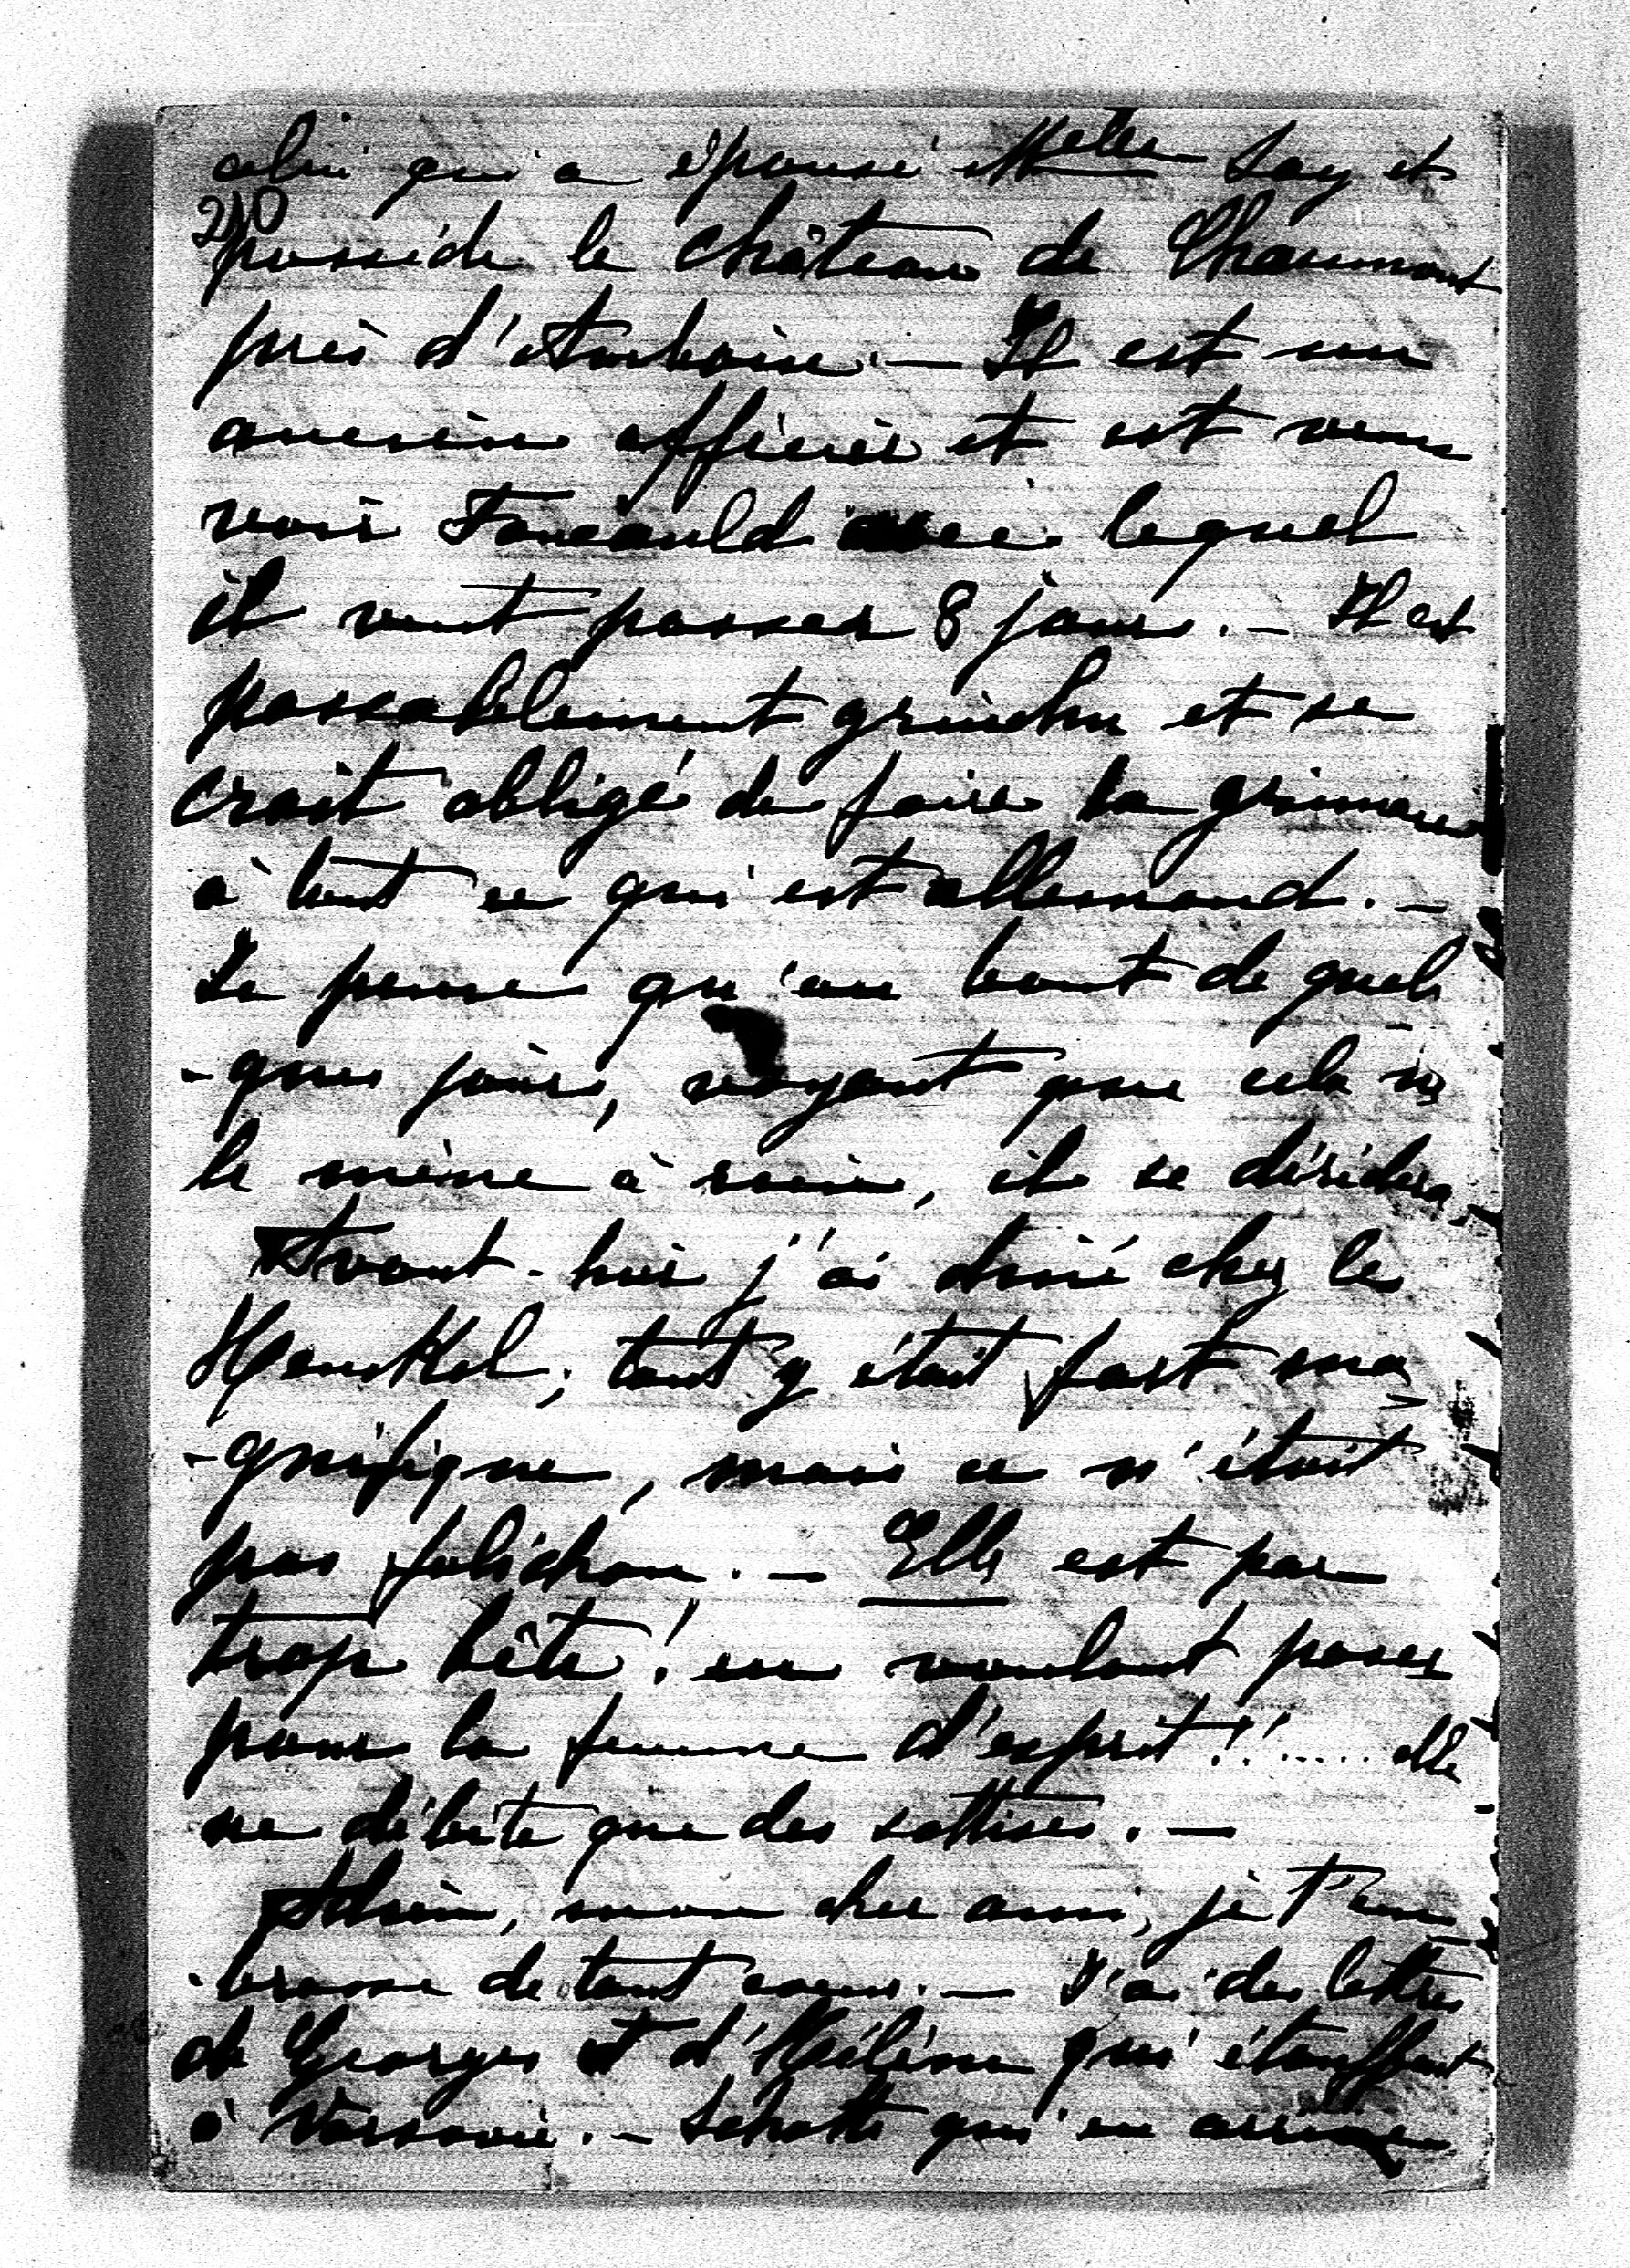 celui qui a épousé Melle Say et
210
possède le château de Chaumont
près d'Amboise. — Il est un
ancien officier et est venu
voir Foucauld avec lequel
il veut passer 8 jours. — Il est
passablement grinchu et se
croit obligé de faire la grimace
à tout ce qui est allemand. —
Je pense qu'au bout de quel-
-ques jours, voyant que cela ne
le mène à rien, il se déridera.
Avant-hier j'ai dîné chez les
Henckel; tout y était fort ma-
-gnifique, mais ce n'était
pas folichon. — Elle est par
trop bête! en voulant poser
pour la femme d'esprit!!..... elle
ne débite que des sottises. —
Adieu, mon cher ami, je t'em-
-brasse de tout coeur. — J'ai des lettres
de Georges et d'Hélène qui étouffent
à Varsovie. — Schotti qui en arrive